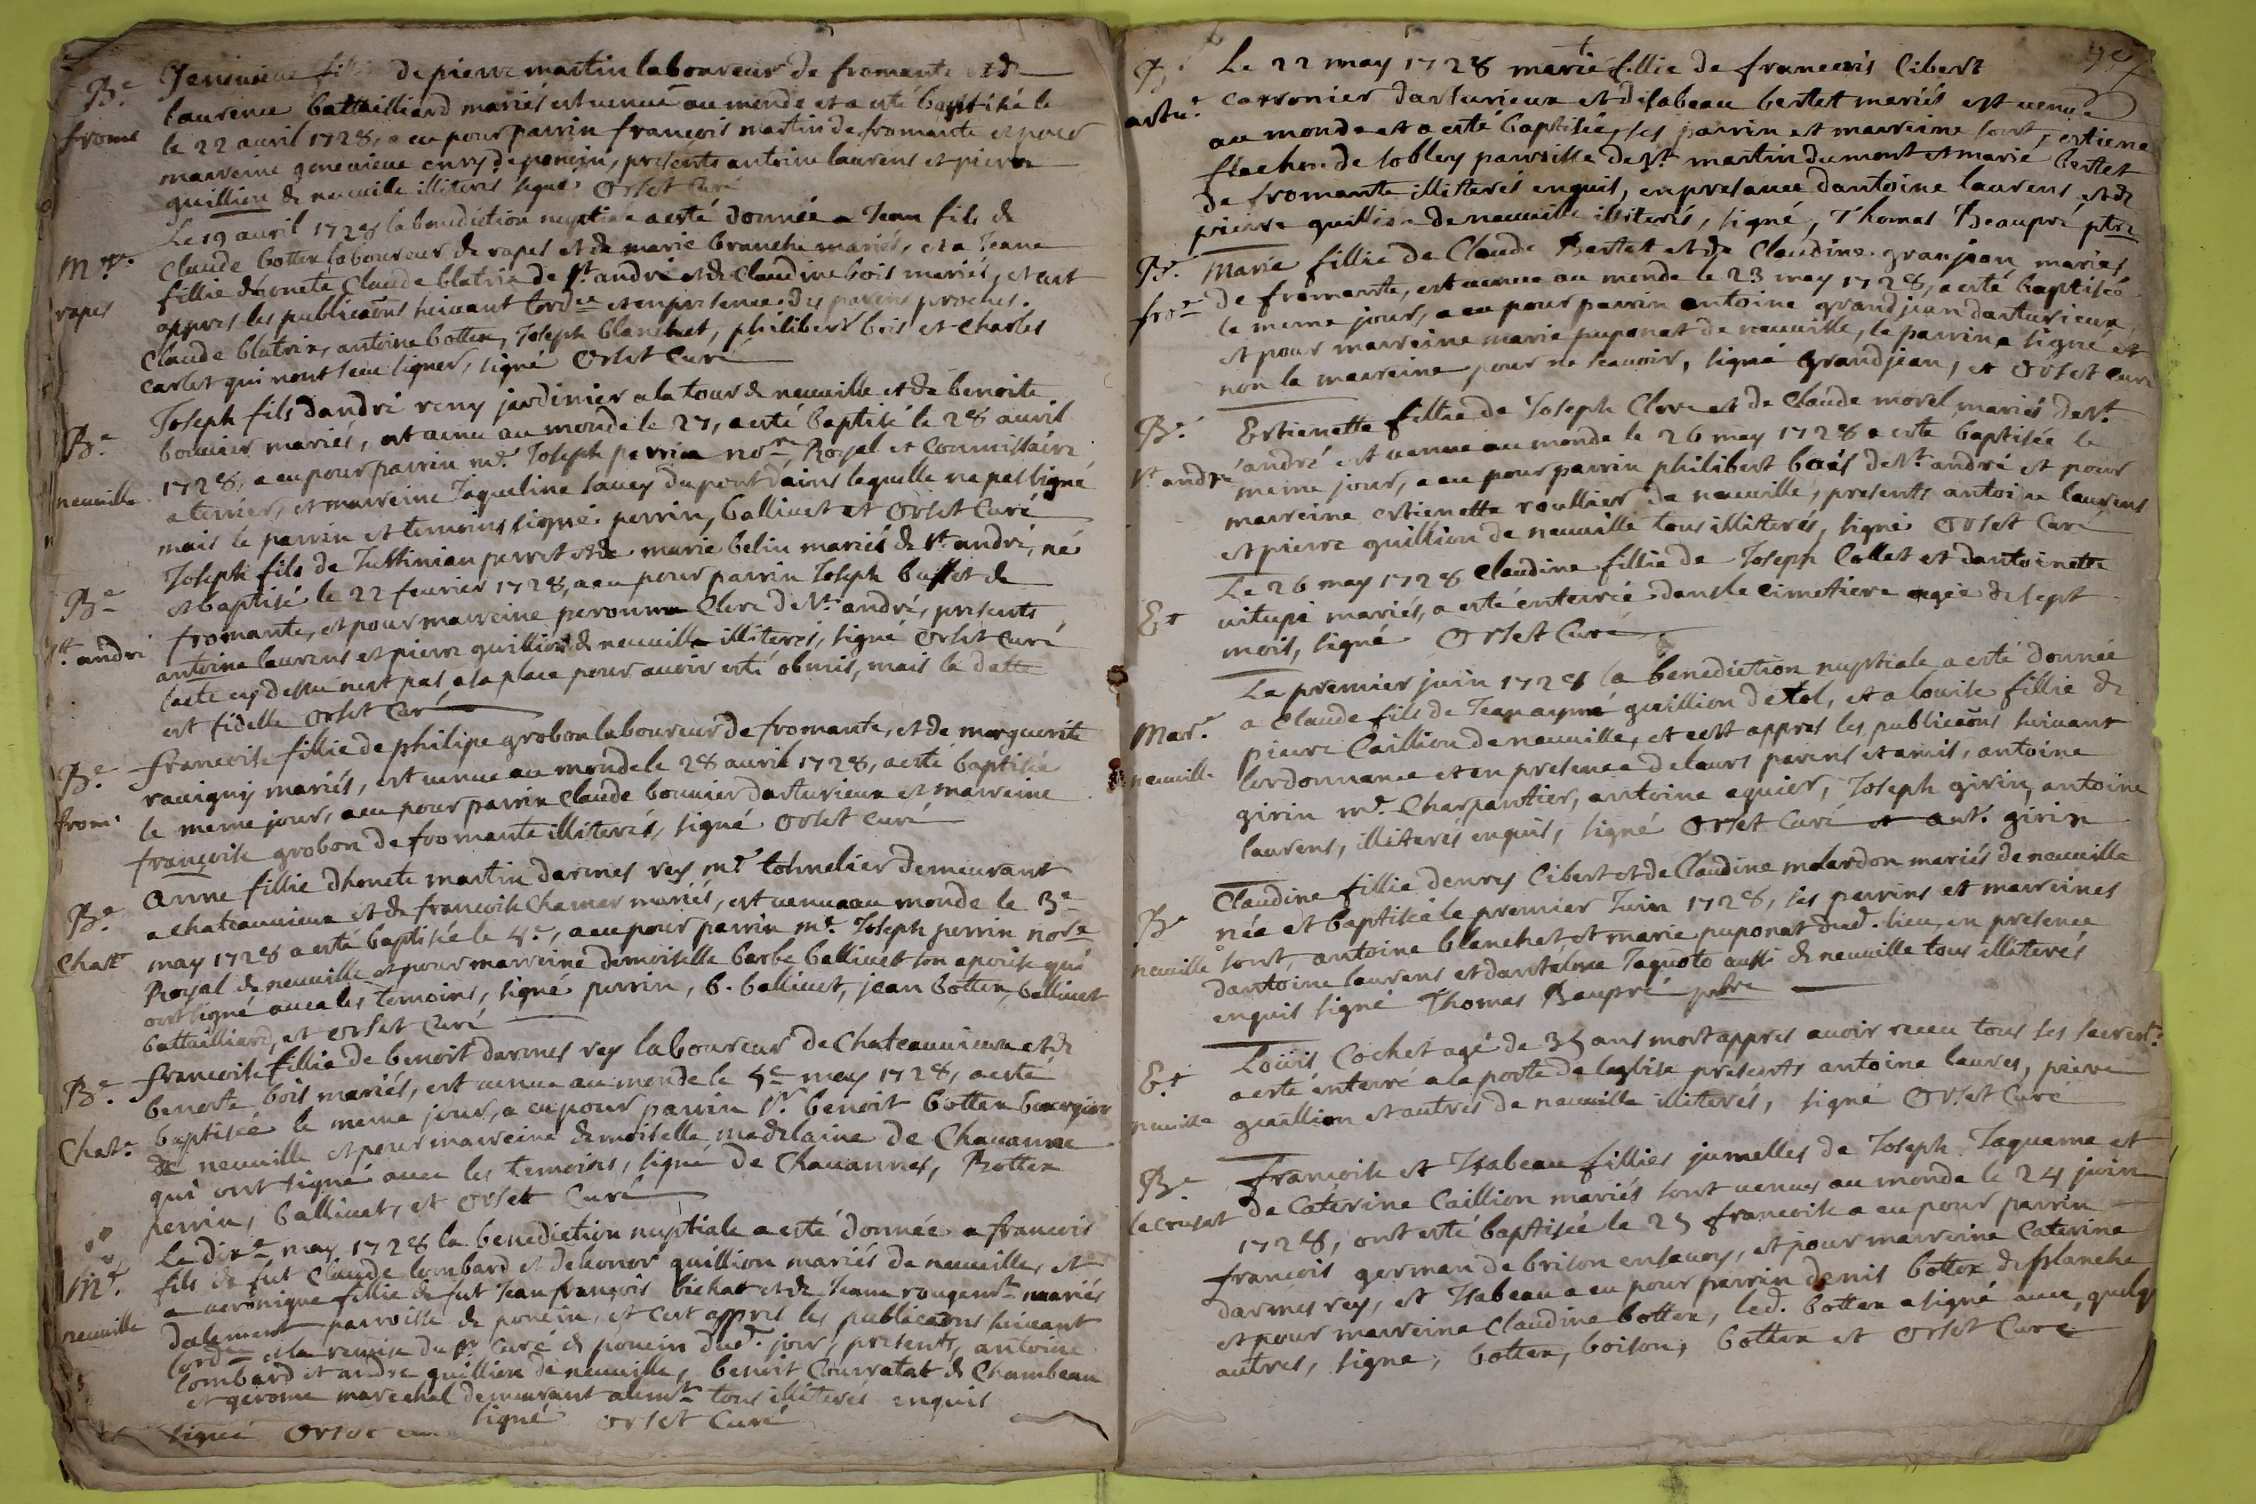 B.e
Genevieve fillie de pierre martin laboureur de fromante et de
laurence battailliard mariés est venue au monde et a esté baptisée le
from.e
le 22 avril 1728, a eu pour parrin françois martin de fromante et pour
marreine genevieve enry de poncin, presents antoine laurens et pierre
guillion de neuville illiterés signé Orset Curé
Le 19 avril 1728 la benediction nuptiale a esté donnée a Jean fils de
M.ge
Claude bottex laboureur de rapes et de marie branche mariés, et a Jeane
rapes
fillie dhonete Claude blatrix de st. andré et de Claudine bois mariés, et cest
appres les publicaons suivant lord.ce et en presence des parens proches.
Claude blatrix, antoine bottex, Joseph blanchet, philibert bois et Charles
carlet qui nont sceu signer, signé Orset Curé
Joseph fils dandré reny jardinier a la tour de neuville et de benoite
B.e
bouvier mariés, est venu au monde le 27, a esté baptisé le 28 avril
1728, a eu pour parrin m.e Joseph perrin no.re Royal et Commissaire
neuville
a terrier, et marreine Jaqueline savey du pont dains lequelle na pas signé
mais le parrin et temoins signé perrin, ballivet et Orset Curé
Joseph fils de Justinian perret et de marie belin mariés de st. andré, né
B.e
et baptisé le 22 fevrier 1728, a eu pour parrin Joseph buffet de
st. andré
fromante, et pour marreine peronne Clerc de st. andré, presents
antoine laurens et pierre guillion de neuville illiterés, signé Orset Curé
lacte cy dessus nest pas a sa place pour avoir esté obmis, mais la datte
est fidelle Orset Curé
B.e
francoise fillie de philipe grobon laboureur de fromante, et de marguerite
ravigny mariés, est venue au monde le 28 avril 1728, a esté baptisée
from.
le meme jour, a eu pour parrin Claude bouvier darturieux et marreine
françoise grobon de fromante illiterés, signé Orset Curé
Anne fillie dhonete martin darmes rey m.e tohnelier demeurant
B.e
a chateauvieux et de francoise Chamar mariés, est venue au monde le 3.e
Chat.e
may 1728 a esté baptisée le 4.e, a eu pour parrin m.e Joseph perrin no.re
Royal de neuville et pour marreine demoiselle barbe ballivet son epouse qui
ont signé avec les temoins, signé perrin, b. ballivet, jean bottex, ballivet
battailliard, et Orset Curé
B.e
francoise fillie de benoit darmes rey laboureur de Chateauvieux et de
benoite bois mariés, est venue au monde le 4.e may 1728, a esté
Chat.e
baptisée le meme jour, a eu pour parrin s.r benoit bottex bourgeois
de neuville et pour marreine demoiselle madelaine de Chavannes
qui ont signé avec les temoins, signé de Chavannes, Bottex
perrin, ballivet, et Orset Curé
Le dix.e may 1728 la benediction nuptiale a esté donnée a francois
M.e
fils de fut Claude lombard et deleonor guillion mariés de neuville, et
a veronique fillie de fut Jean françois bichat et de Jeane rougemt mariés
neuville
dalement parroisse de poncin, et cest appres les publicaons suivant
lord.ce et la remise du sr. Curé de poncin dud. jour, presents, antoine
lombard et andre guillion de neuville, benoit Courratat de Chambeau
et gerome marechal demeurant tous illiterés enquis
signé Orset Curé signé Orset Curé
B.e
Le 22 may 1728 marie fillie de francois Cibert
artu.e
carronier darturieux et disabeau bertet mariés est venue
au monde et a esté baptisée, ses parrin et marreine sont, estiene
flachon de sobley parroisse de st. martin du mont et marie bertet
de fromante illiterés enquis, en presance dantoine laurens et de
pierre guillion de neuville illiterés, signé, Thomas Beaupré ptre
B.e
Marie fillie de Claude Bertet et de Claudine granjean mariés
fro.e
de fromante, est venue au monde le 23 may 1728, a esté baptisée
le meme jour, a eu pour parrin antoine grandjean darturieux,
et pour marreine marie puponat de neuville, le parrin a signé et
non la marreine pour ne scavoir, signé grandjean, et Orset Curé
B.e
Estienette fillie de Joseph Clerc et de Claude morel mariés de st.
st. andré
andré est venue au monde le 26 may 1728 a esté baptisée le
meme jour, a eu pour parrin philibert bois de st. andré et pour
marreine estienette roullier de neuville, presents antoine laurens
et pierre guillion de neuville tous illiterés, signé Orset Curé
Le 26 may 1728 Claudine fillie de Joseph Collet et dantoinette
Et
vitupi mariés, a esté enterrée dans le cimetiere agée de sept
mois, signé Orset Curé
Le premier juin 1728 la benediction nuptiale a esté donnée
Mar.e
a Claude fils de Jean aymé guillion de tol, et a louise fillie de
pierre Caillion de neuville, et cest appres les publicaons suivant
neuville
lordonnance et en presence de leurs parens et amis, antoine
girin m.e Charpantier, antoine aguier, Joseph girin, antoine
laurens, illiterés enquis, signé Orset Curé et ant. girin
Claudine fillie denry Cibert et de Claudine molardon mariés de neuville
B.e
née et baptisée le premier Juin 1728, ses parrins et marreines
neuville
sont antoine blanchet, et marie puponat dud. lieu, en presence
dantoine laurens et dantelme Jaquoto aussi de neuville tous illiterés
enquis signé Thomas Baupré ptre
Loüis Cochet agé de 35 ans mort appres avoir receu tous ses sacrem.ts
Et
a esté enterré a la porte de leglise presents antoine laures, pierre
neuville
guillion et autres de neuville illiterés, signé Orset Curé
B.e
francoise et Isabeau fillies jumelles de Joseph Jaqueme et
le crusat
de Caterine Caillion mariés sont venues au monde le 24 juin
1728, ont esté baptisée le 25 francoise a eu pour parrin
francois german de brison en savoy, et pour marreine Caterine
darmes rey, et Isabeau a eu pour parrin denis bottex de planche
et pour marreine Claudine bottex, led. bottex a signé avec quelq
autres, signé, bottex, boison, bottex et Orset Curé